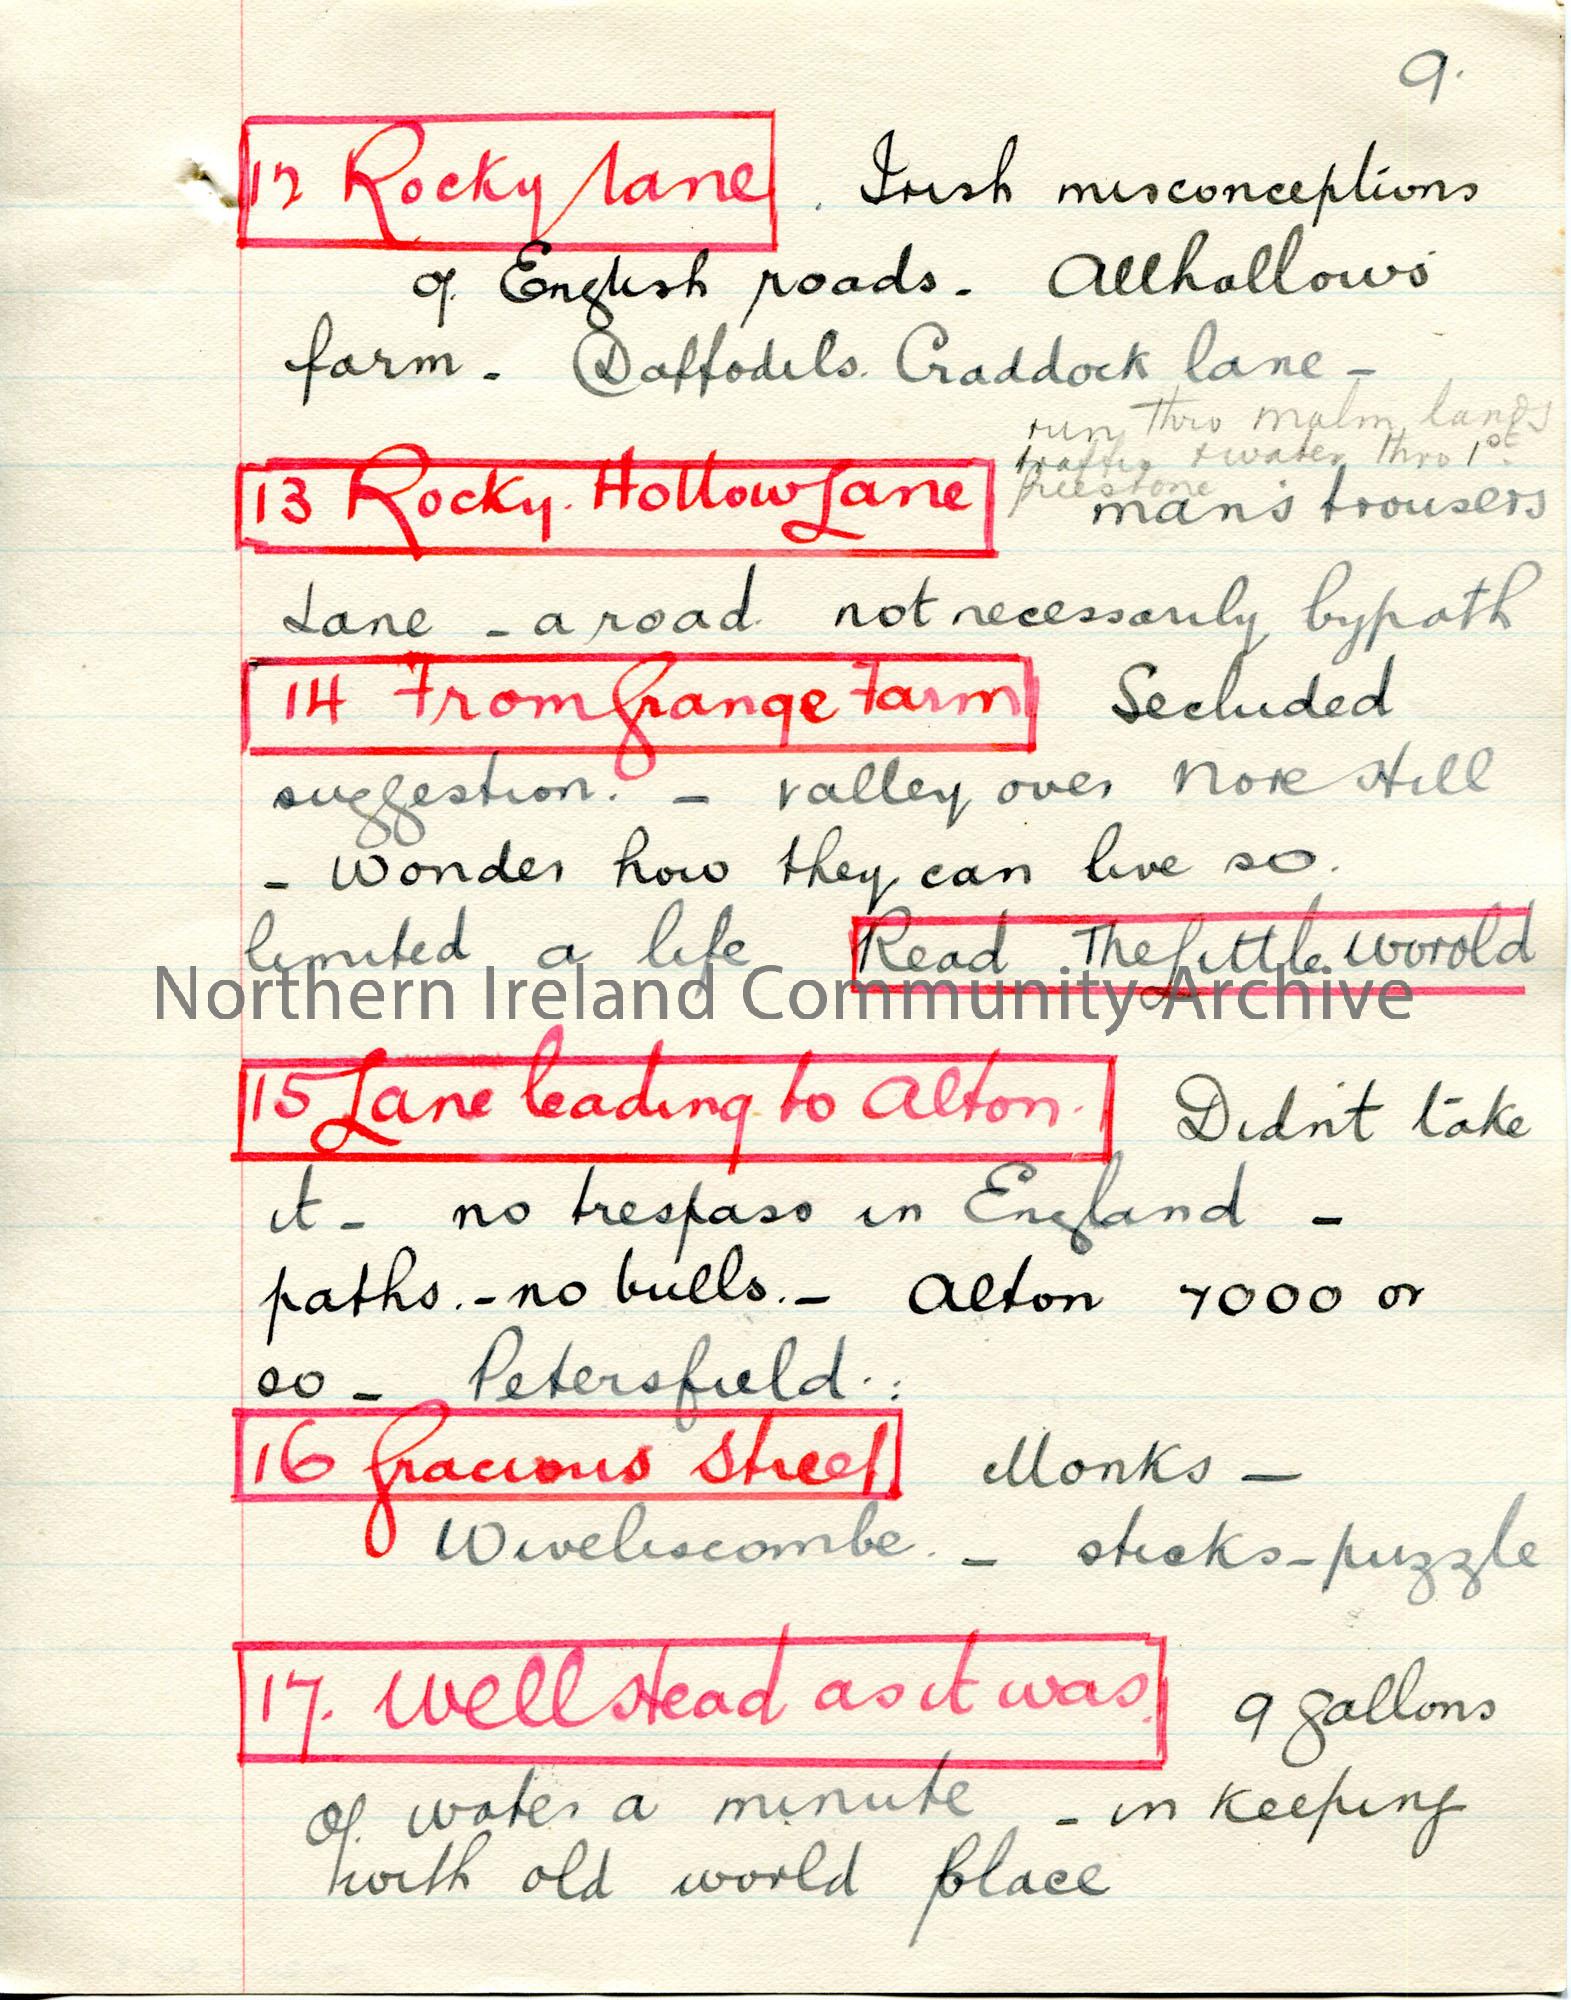 9.
12 Rocky lane . Irish misconceptions
of English roads - Allhallows
farm - Daffodils. Craddock lane -
run thro malm lands
traffic & water thro 1st
freestone
13 Rocky Hollow Lane man's trousers
Lane - a road not necessarily bypath
14 From Grange Farm Secluded
suggestion. - valley over Nore Hill
- Wonder how they can live so.
limited a life Read The Little worold
Northern Ireland Community Archive
15 Lane leading to Alton. Didn't take
it - no trespass in England -
paths. - no bulls. - Alton 7000 or
so - Petersfield . :
16 Gracious Street Monks -
Wiveliscombe. - sticks - puzzle
17. Well Head as it was. 9 gallons
of water a minute - in keeping
with old world place